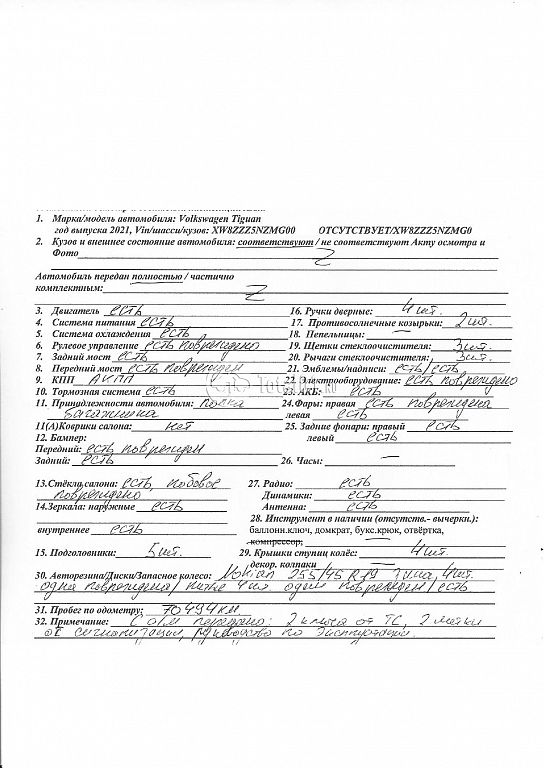 1. Марка/модель автомобиля: Volkswagen Tiguan
год выпуска 2021, Vin/шасси/кузов: XW8ZZZ5NZMG00 ОТСУТСТВУЕТ/XW8ZZZ5NZMG0
2. Кузов и внешнее состояние автомобиля: соответствуют / не соответствуют Акту осмотра и
Фото Z
Автомобиль передан полностью / частично
комплектным: Z
3. Двигатель есть 16. Ручки дверные: 4 шт.
4. Система питания есть 17. Противосолнечные козырьки: 2 шт.
5. Система охлаждения есть 18. Пепельницы: —
6. Рулевое управление есть повреждено 19. Щетки стеклоочистителя: 3 шт.
7. Задний мост есть 20. Рычаги стеклоочистителя: 3 шт.
8. Передний мост есть поврежден 21. Эмблемы/надписи: есть/есть
9. КПП АКПП 22. Электрооборудование: есть повреждено
10. Тормозная система есть 23. АКБ: есть
11. Принадлежности автомобиля: полка 24. Фары: правая есть повреждена
багажника левая есть
11(А)Коврики салона: нет 25. Задние фонари: правый есть
12. Бампер: левый есть
Передний: есть поврежден
Задний: есть 26. Часы: —
13.Стёкла салона: есть, лобовое 27. Радио: есть
повреждено Динамики: есть
14.Зеркала: наружные есть Антенна: есть
28. Инструмент в наличии (отсутств.- вычерки.):
внутреннее есть баллонн.ключ, домкрат, букс.крюк, отвёртка,
компрессор,
15. Подголовники: 5 шт. 29. Крышки ступиц колёс: 4 шт.
декор. колпаки —
30. Авторезина/Диски/Запасное колесо: Nokian 255/45 R19 4 шт.
одна повреждена/ литье 4 шт один поврежден/ есть
31. Пробег по одометру: 70494 км
32. Примечание: С а/м передано: 2 ключа от ТС, 2 метки
от сигнализации, руководство по эксплуатации.